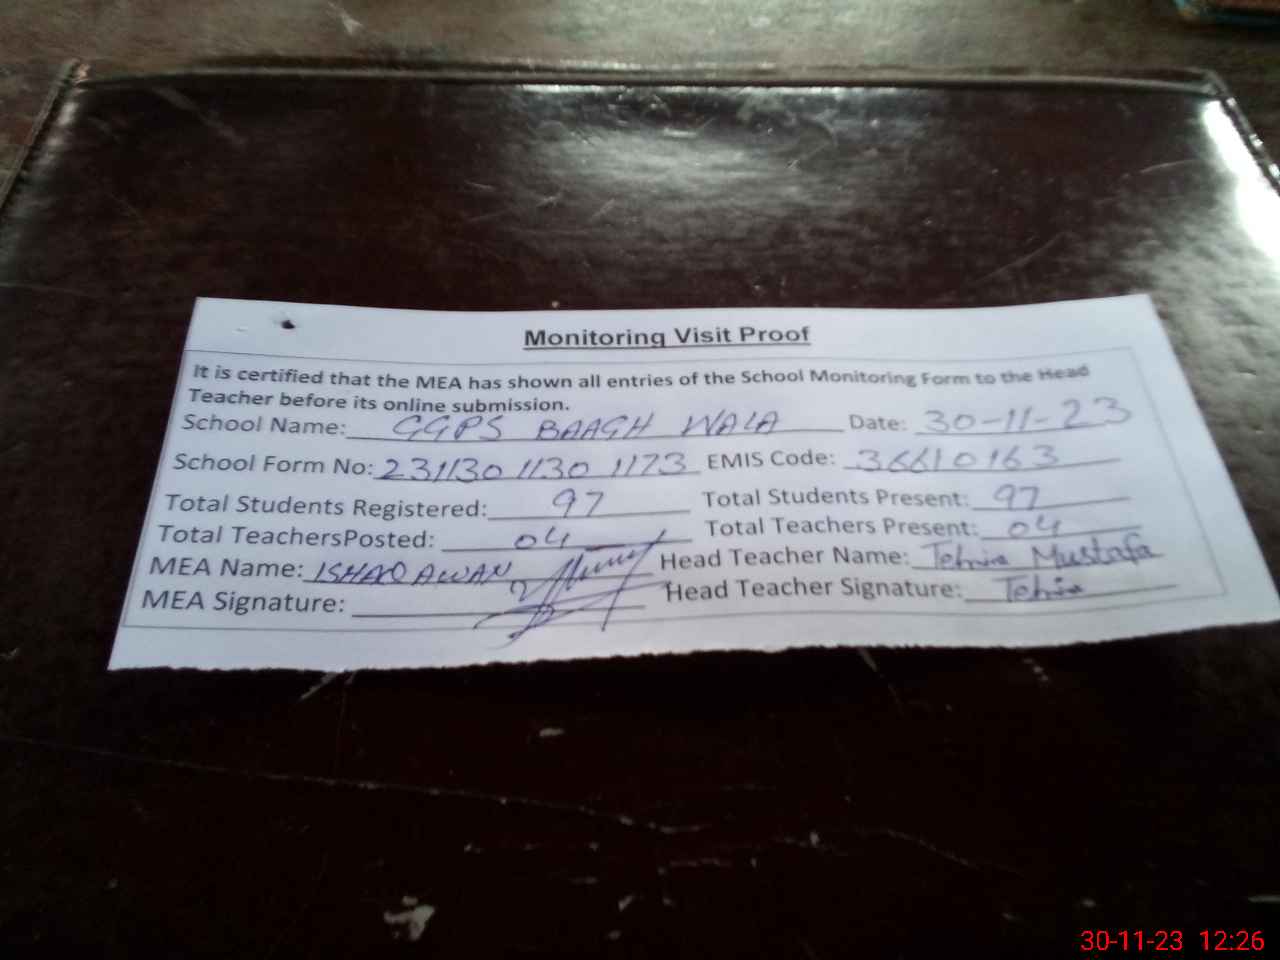 Monitoring Visit Proof
It is certified that the MEA has shown all entries of the School Monitoring Form to the Head
Teacher before its online submission.
School Name: GGPS BAAGH WALA Date: 30-11-23
School Form No: 231130 1130 1173 EMIS Code: 36610163
Total Students Registered: 97 Total Students Present: 97
Total TeachersPosted: 04 Total Teachers Present: 04
MEA Name: ISHAQ AWAN Head Teacher Name: Tehria Mustafa
MEA Signature: Head Teacher Signature: Tehria
30-11-23 12:26